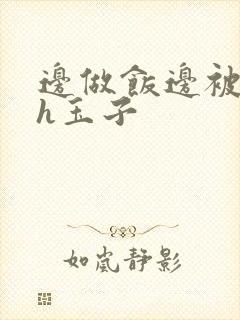 邊做飯邊被
h玉子
如嵐靜影